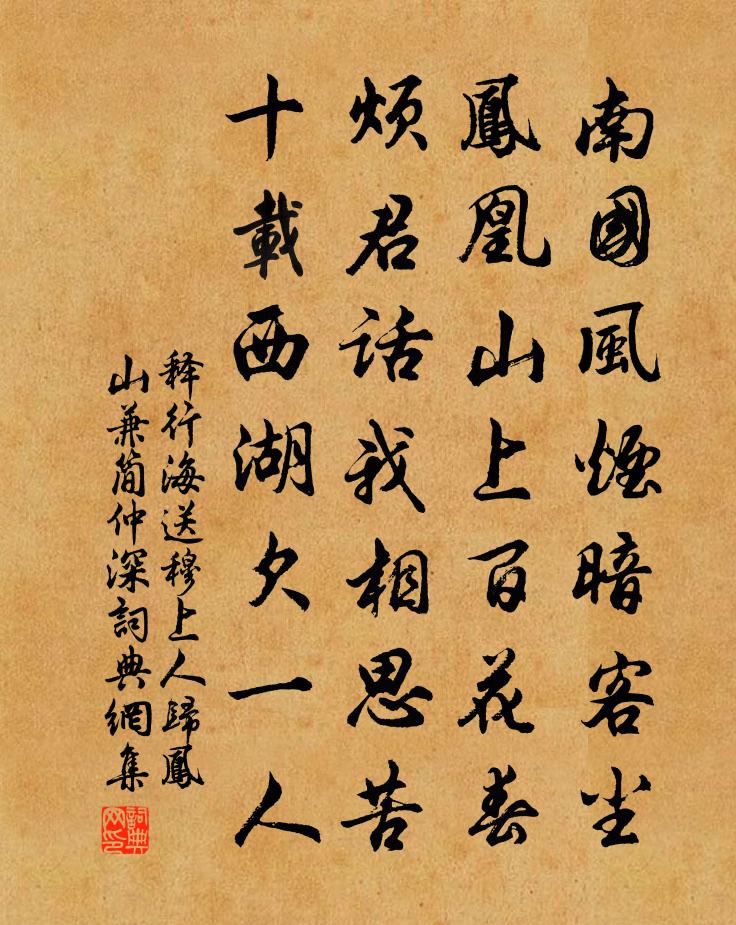 南國風煙暗客尘
鳳凰山上百花春
煩君話我相思苦
十載西湖欠一人
释行海送穆上人歸鳳
山兼简仲深詞典網集
詞典
网印